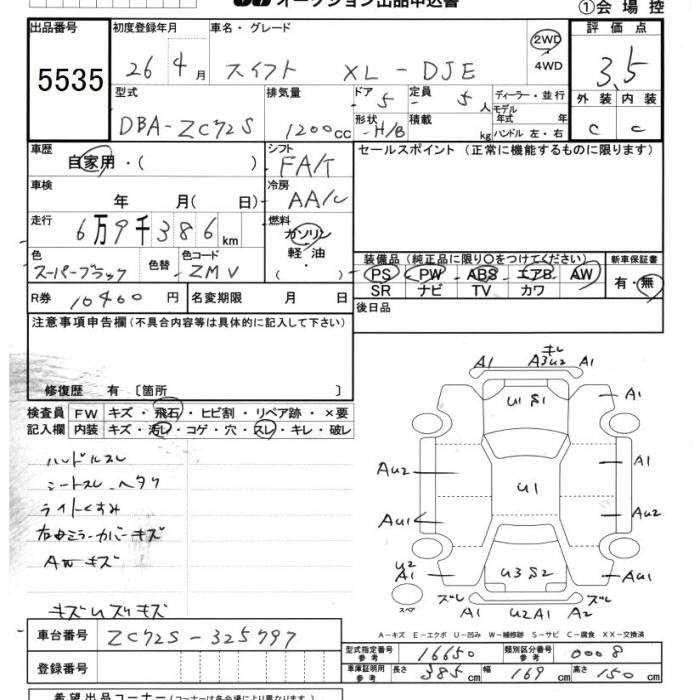 オークション出品申込書
①会場控
出品番号
5535
初度登録年月
26 4月
車名・グレード
スイフト XL-DJE
2WD
4WD
評価点
3.5
外装 内装
C C
型式
DBA-ZC72S
排気量
1200cc
ドア 5
形状 H/B
定員 5人
積載 kg
ディーラー・並行
モデル年式 年
ハンドル 左・右
車歴
自家用・( )
シフト
FA/T
セールスポイント (正常に機能するものに限ります)
車検
年 月( 日)
冷房
AA/C
走行
6万9千386km
燃料
ガソリン
軽・油
( )
色
スーパーブラック
色替
色コード
ZMV
装備品 (純正品に限り○をつけてください)
PS PW ABS エアB AW
SR ナビ TV カワ
新車保証書
有・無
R券 10460円
名変期限 月 日
後日品
注意事項申告欄 (不具合内容等は具体的に記入して下さい)
修復歴 有 〔箇所 〕
検査員記入欄
FW キズ・飛石・ヒビ割・リペア跡・×要
内装 キズ・汚レ・コゲ・穴・スレ・キレ・破レ
ハンドルスレ
シートスレ・ヘタリ
ライトくすみ
右ミラーカバーキズ
AWキズ
キズUズリキズ
A1 キレ A3U2 A1
U1 S1
A1
A1
AU2
U1
AU1
AU2
U2 A1
U3 S2
AU1
スペア
ズレ A1 U2A1 A2 ズレ
A-キズ E-エクボ U-凹み W-補修跡 S-サビ C-腐食 XX-交換済
車台番号
ZC72S-325797
登録番号
型式指定番号 参考 16650
類別区分番号 参考 0008
車庫証明用 参考 長さ 385cm 幅 169cm 高さ 150cm
希望出品コーナー (コーナーは各会場により異なります)